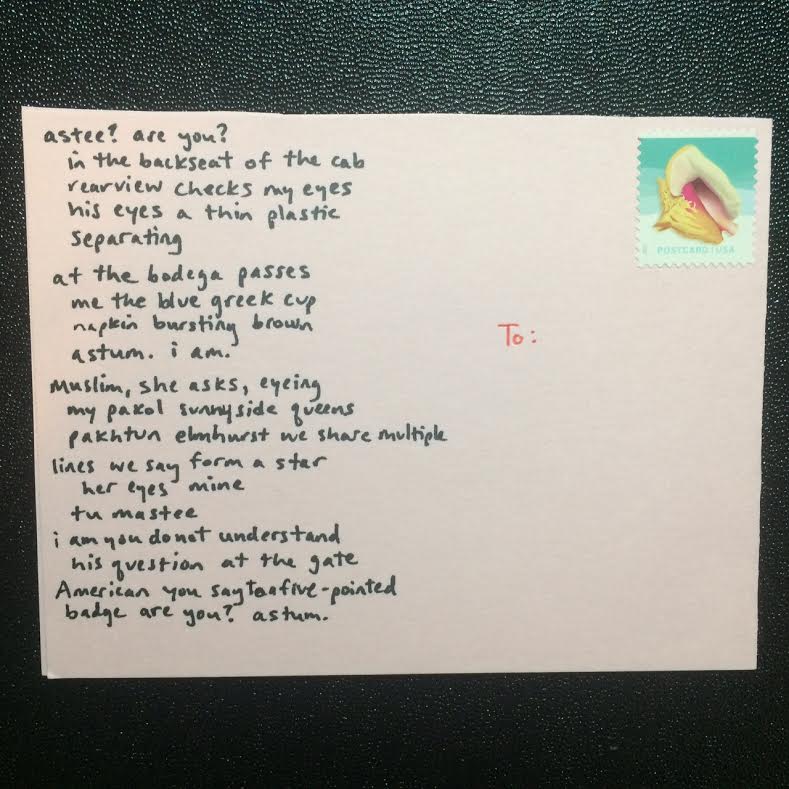 astee? are you?
in the backseat of the cab
rearview checks my eyes
his eyes a thin plastic
separating
at the bodega passes
me the blue greek cup
napkin bursting brown
astum. i am.
Muslim, she asks, eyeing
my pakol sunnyside queens
pakhtun elmhurst we share multiple
lines we say form a star
her eyes mine
tu mastee
i am you do not understand
his question at the gate
American you say to a five-pointed
badge are you? astum.
POSTCARD | USA
To: